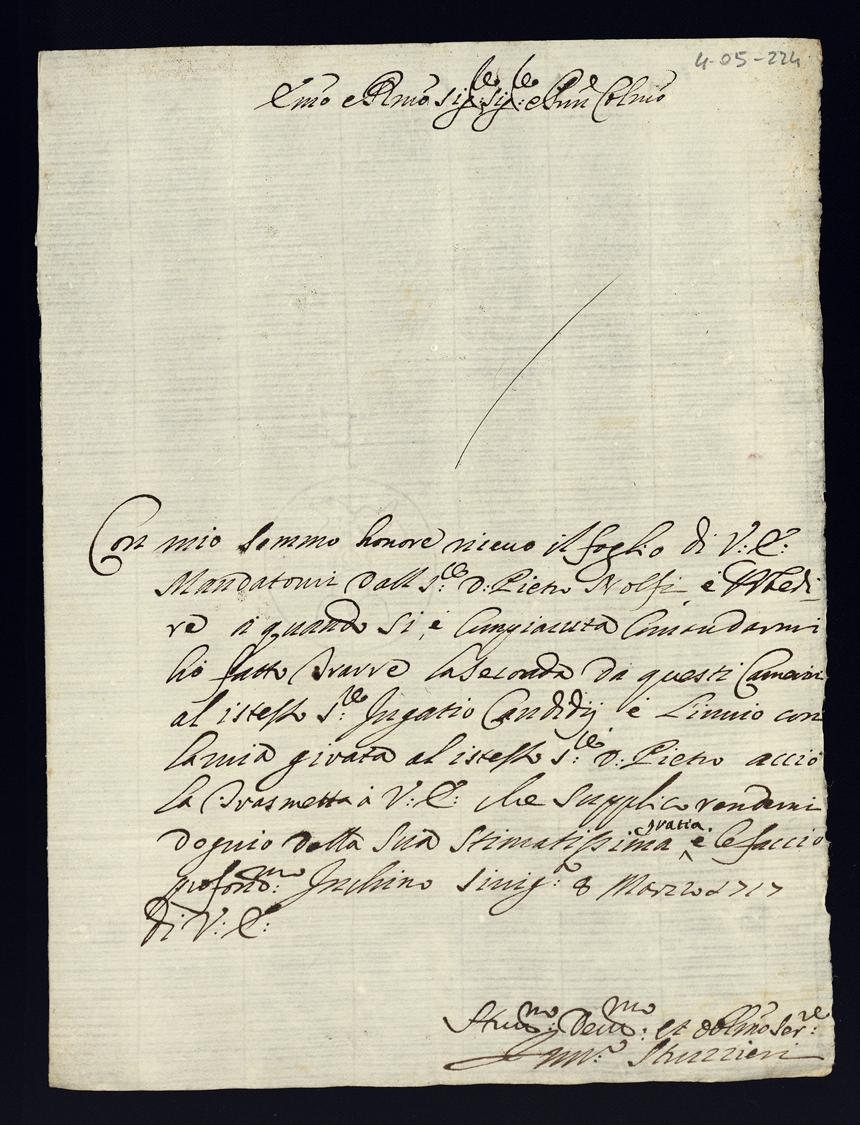 4-05-224
Emo e Rmo Sig:re Sig:re e Pne Colmo
Con mio sommo honore riceuo il foglio di V: E:
Mandatomi dall S:re D: Pietro Nolfi e Vbedi
re a quando si é Compiaciuta Comandarmi
hò fatto trarre la Seconda da questi Camerari
al istesso S:re Ingatio Candidij e L'inuio con
la mia girata al istesso S:re D: Pietro acciò
la trasmetta à V: E: che Supplico rendermi
degnio della Sua Stimatissima gratia. e le faccio
profond:mo Inchino Sinig:a 8 Marzo 1717
di V: E:
Hum:mo Deu:mo: et oblmo Ser:re
Struzzieri